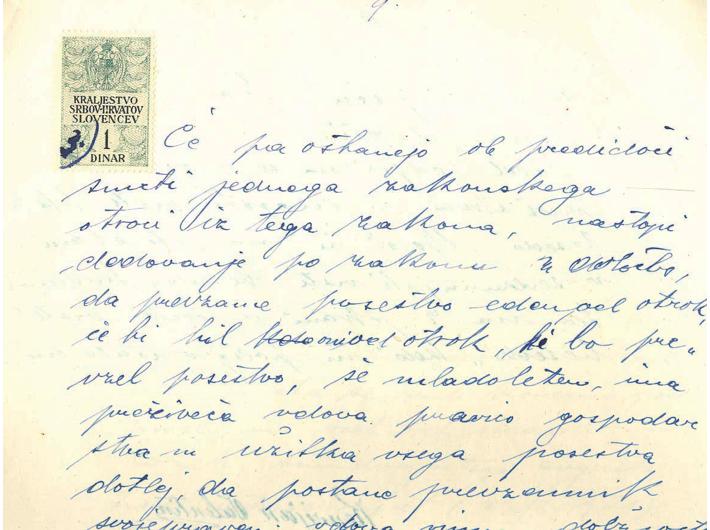 9.
KRALJESTVO
SRBOV-HRVATOV
SLOVENCEV
1
DINAR
Če pa ostanejo ob predidoči
smrti jednega zakonskega
otroci iz tega zakona, nastopi
dedovanje po zakonu z določbo,
da prevzame posestvo eden od otrok,
če bi bil od otrok, ki bo pre„
vzel posestvo, še mladoleten, ima
preživeča vdova pravico gospodar
stva in užitka vsega posestva
dotlej da postane prevzemnik
vdova